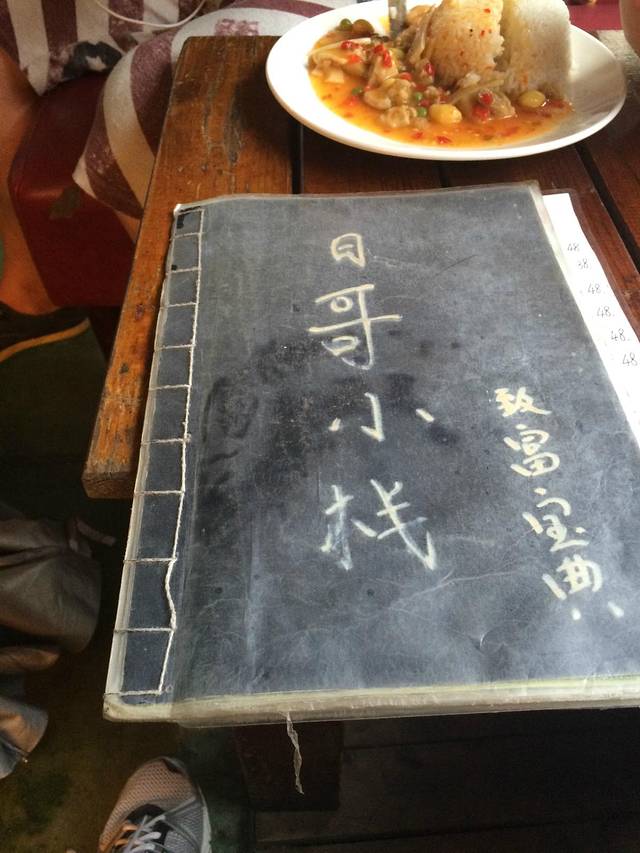 日哥小栈
致富宝典
48
38.
48.
48.
48.
48